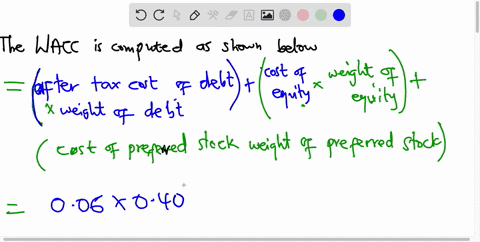 The WACC is computed as shown below
= (after tax cost of debt × weight of debt) + (cost of equity × weight of equity) +
(cost of preferred stock weight of preferred stock)
= 0.06 × 0.40